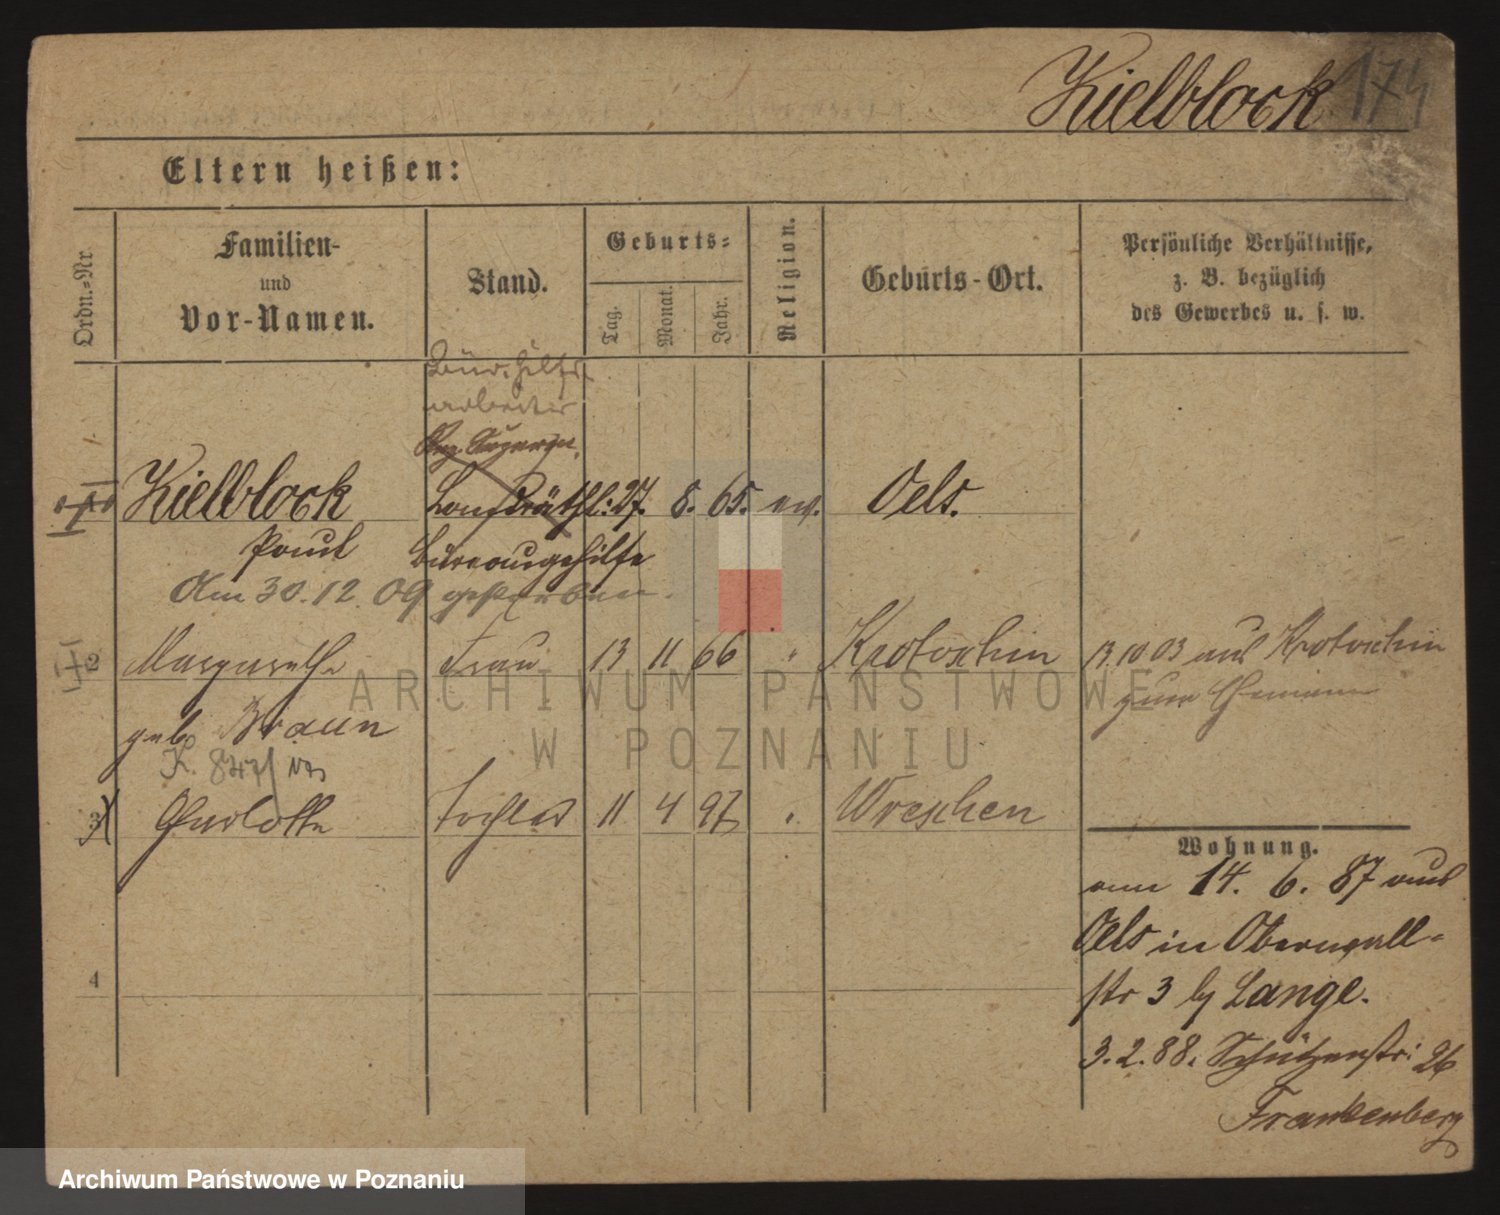 Kielblock 174
Eltern heißen:
Ordn.=Nr
Familien-
und
Vor-Namen.
Stand.
Geburts=
Tag.
Monat.
Jahr.
Religion.
Geburts-Ort.
Persönliche Verhältnisse,
z. B. bezüglich
des Gewerbes u. s. w.
Büro. Hilfs
arbeiter
Kielblock Landräthl. 27. 8. 65. ev. Oels.
Paul Bureaugehilfe
Am 30.12.09 gestorben.
2 Margarethe Frau 13 11 66 " Krotoschin 13.10.03 aus Krotoschin
geb. Braun
zur
K. 847
3 Charlotte Tochter 11 4 97 " Wreschen
Wohnung.
am 14. 6. 87 aus
Oels in Oberwall-
str 3 by Lange.
3.2.88. Schützenstr: 26
Frankenberg
4
ARCHIWUM PAŃSTWOWE
W POZNANIU
Archiwum Państwowe w Poznaniu